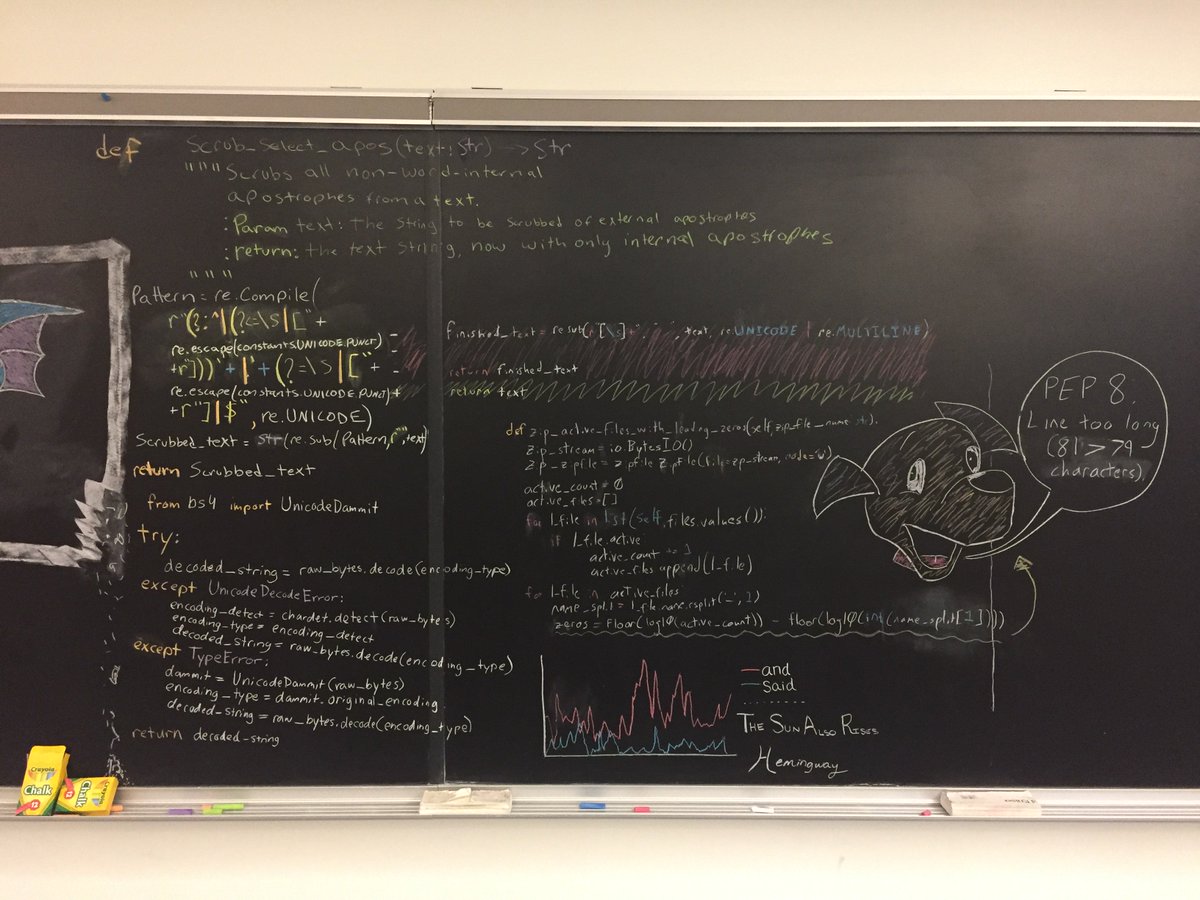 def scrub_select_apos(text: str) -> str
"""Scrubs all non-word-internal
apostrophes from a text.
:Param text: The string to be scrubbed of external apostrophes
:return: the text string, now with only internal apostrophes
"""
Pattern = re.Compile(
r"(?:^|(?<=\s|["+
re.escape(constants.UNICODE.PUNCT)
+r"]))'+|'+(?=\s|["+
re.escape(constants.UNICODE.PUNCT)+
+r"]|$", re.UNICODE)
Scrubbed_text = str(re.sub(Pattern,r"",text)
return Scrubbed_text
from bs4 import UnicodeDammit
try:
decoded_string = raw_bytes.decode(encoding_type)
except UnicodeDecodeError:
encoding_detect = chardet.detect(raw_bytes)
encoding_type = encoding_detect
decoded_string = raw_bytes.decode(encoding_type)
except TypeError:
dammit = UnicodeDammit(raw_bytes)
encoding_type = dammit.original_encoding
decoded_string = raw_bytes.decode(encoding_type)
return decoded_string
finished_text = re.sub(r"[\s]+", " ", text, re.UNICODE | re.MULTILINE)
return finished_text
return text
def zip_active_files_with_leading_zeros(self, zip_file_name: str):
zip_stream = io.BytesIO()
active_count = 0
active_files = []
for l_file in list(self.files.values()):
if l_file.active
active_count += 1
active_files.append(l_file)
for l_file in active_files
name_split = l_file.name.rsplit('-', 1)
zeros = floor(log10(active_count)) - floor(log10(int(name_split[1])))
PEP 8:
Line too long
(81 > 79
characters).
and
said
THE SUN ALSO RISES
Hemingway
Crayola
Chalk
12
Crayola
Chalk
12